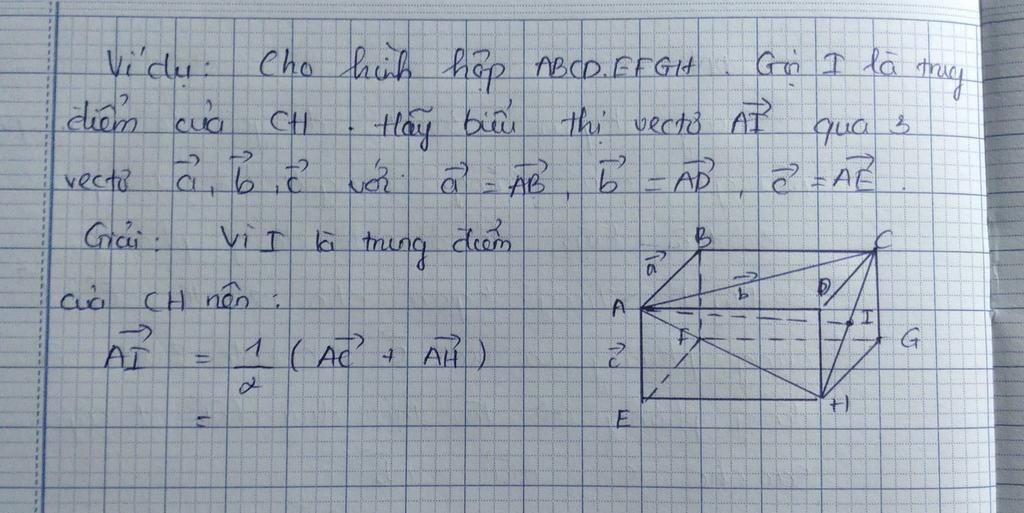 Ví dụ: Cho hình hộp ABCD.EFGH. Gọi I là trung
điểm của CH. Hãy biểu thị vectơ AI→ qua 3
vectơ a→, b→, c→ với a→ = AB→, b→ = AD→, c→ = AE→.
Giải: Vì I là trung điểm
của CH nên:
AI→ = 1/2 (AC→ + AH→)
=
B C
a→ b→ D
A I
F G
c→
E H